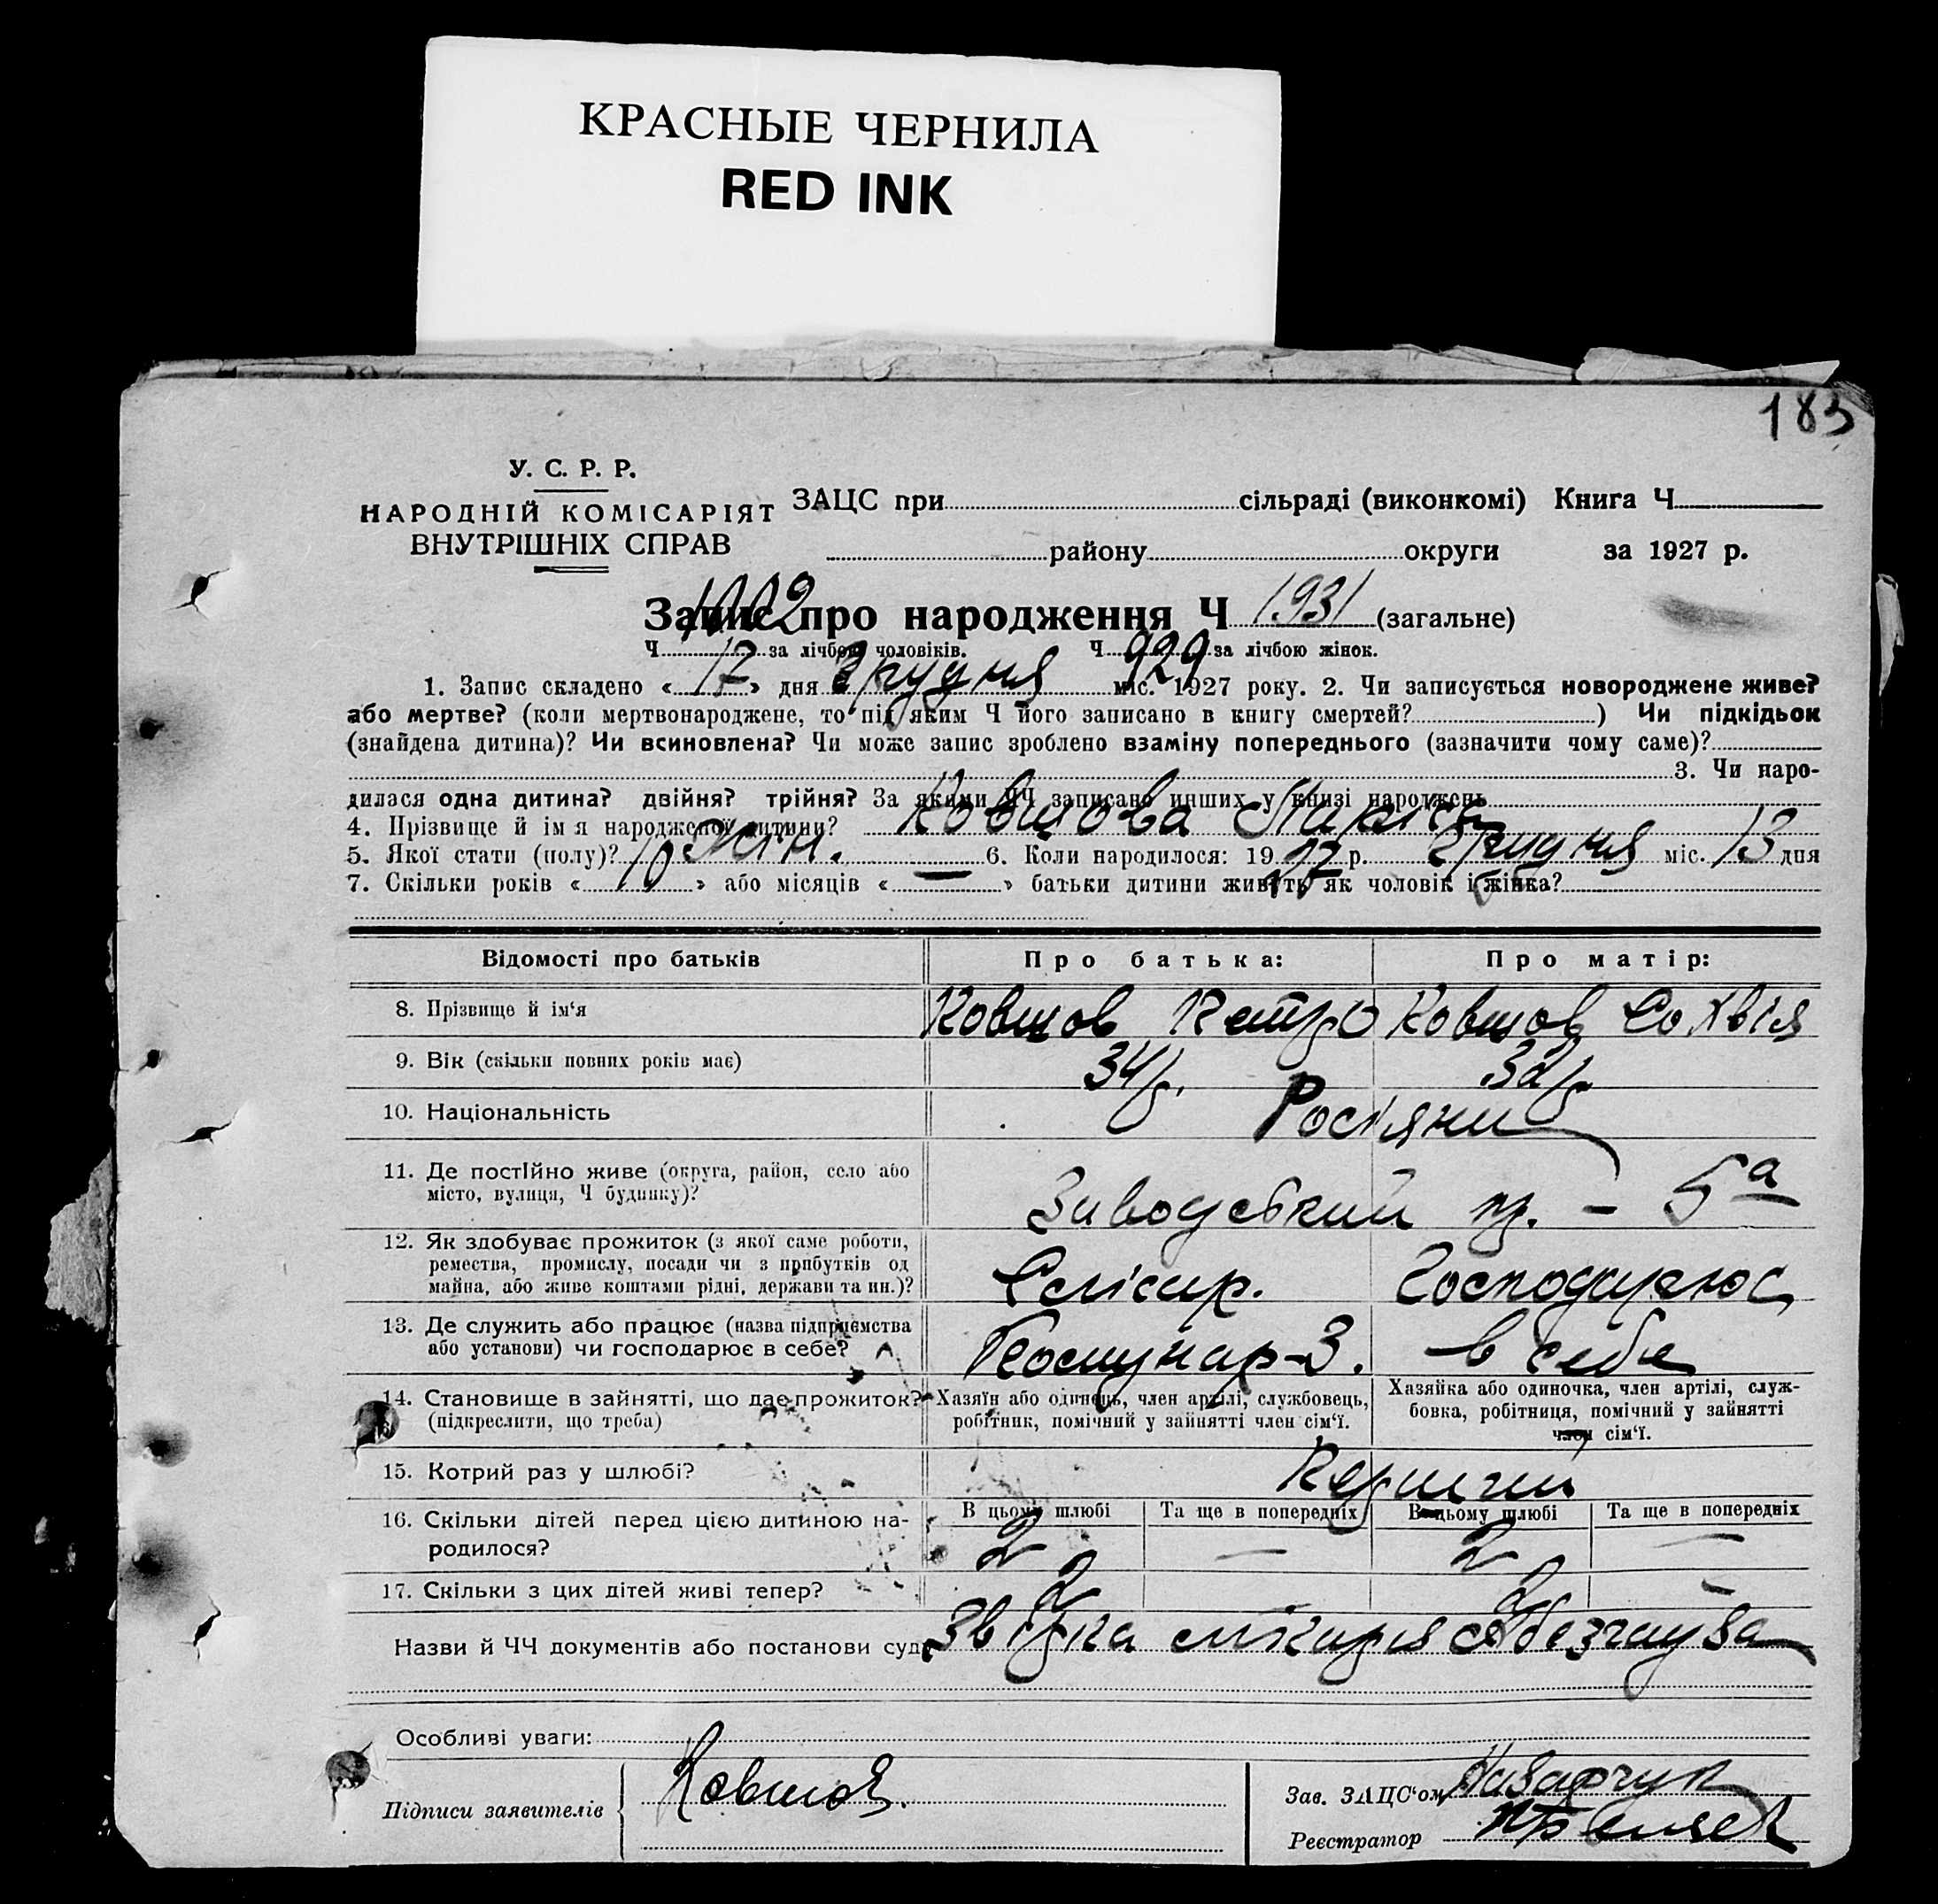 КРАСНЫЕ ЧЕРНИЛА
RED INK
183
У. С. Р. Р.
НАРОДНІЙ КОМІСАРІЯТ
ВНУТРІШНІХ СПРАВ
ЗАЦС при сільраді (виконкомі) Книга Ч
району округи за 1927 р.
Запис про народження Ч 1931 (загальне)
Ч 1002 за лічбою чоловіків. Ч 929 за лічбою жінок.
1. Запис складено « 17 » дня Грудня міс. 1927 року. 2. Чи записується новороджене живе?
або мертве? (коли мертвонароджене, то під яким Ч його записано в книгу смертей? ) Чи підкідьок
(знайдена дитина)? Чи всиновлена? Чи може запис зроблено взаміну попереднього (зазначити чому саме)?
3. Чи наро-
дилася одна дитина? двійня? трійня? За якими ЧЧ записано инших у книзі народжень
4. Прізвище й імя народженої дитини? Ковшова
5. Якої стати (полу)? Жін. 6. Коли народилося: 19 27 р. Грудня міс. 13 дня
7. Скільки років « 10 » або місяців « — » батьки дитини живуть як чоловік і жінка?
Відомості про батьків Про батька: Про матір:
8. Прізвище й ім'я Ковшов Петро Ковшов Сохвія
9. Вік (скільки повних років має) 34 р. 32 р.
10. Національність Росіяни
11. Де постійно живе (округа, район, село або
місто, вулиця, Ч будинку)? Заводський пр. – 5а
12. Як здобуває прожиток (з якої саме роботи,
ремества, промислу, посади чи з прибутків од
майна, або живе коштами рідні, держави та ин.)? Слісар. Господарює
13. Де служить або працює (назва підприємства
або установи) чи господарює в себе? в себе
14. Становище в зайнятті, що дає прожиток?
(підкреслити, що треба)
Хазяїн або одинець, член артілі, службовець,
робітник, помічний у зайнятті член сім'ї.
Хазяйка або одиночка, член артілі, служ-
бовка, робітниця, помічний у зайнятті
член сім'ї.
15. Котрий раз у шлюбі? Перший
16. Скільки дітей перед цією дитиною на-
родилося?
В цьому шлюбі Та ще в попередніх В цьому шлюбі Та ще в попередніх
2 — 2 —
17. Скільки з цих дітей живі тепер? 2 2 —
Назви й ЧЧ документів або постанови суду Звідка лікаря
Особливі уваги:
Підписи заявителів Ковшов.
Зав. ЗАЦС'ом
Реєстратор